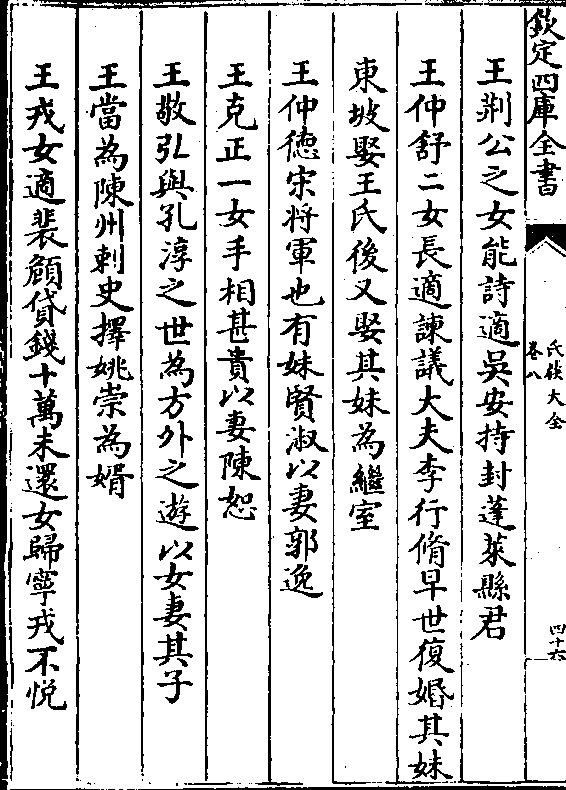 欽定四庫全書
氏族大全
卷八
四十六
王荆公之女能詩適吳安持封蓬萊縣君
王仲舒二女長適諫議大夫李行脩早世復婚其妹
東坡娶王氏後又娶其妹為繼室
王仲徳宋將軍也有妹賢淑以妻郭逸
王克正一女手相甚貴以妻陳恕
王敬弘與孔淳之世為方外之遊以女妻其子
王當為陳州刺史擇姚崇為婿
王戎女適裴頠貸錢十萬未還女歸寧戎不悦